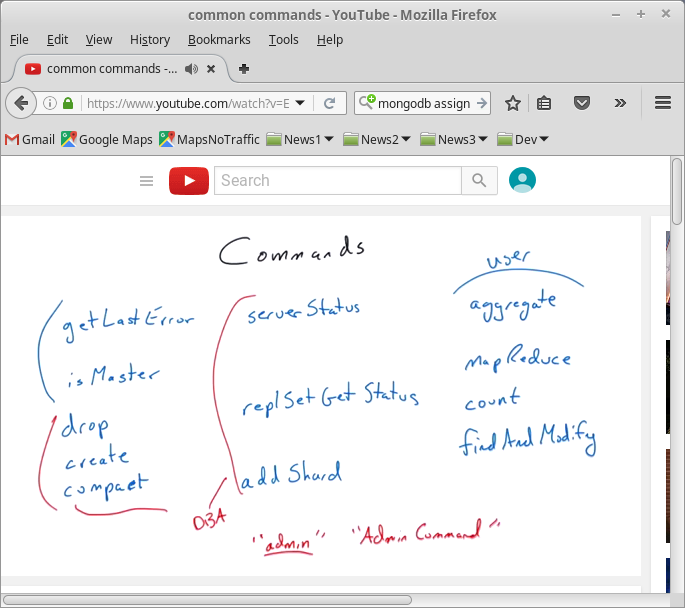 common commands - YouTube - Mozilla Firefox
File Edit View History Bookmarks Tools Help
common commands -...
https://www.youtube.com/watch?v=E
mongodb assign
Gmail Google Maps MapsNoTraffic News1 News2 News3 Dev
Search
Commands
user
getLastError
isMaster
drop
create
compact
serverStatus
replSetGetStatus
addShard
DBA
aggregate
mapReduce
count
findAndModify
"admin" "Admin Command"